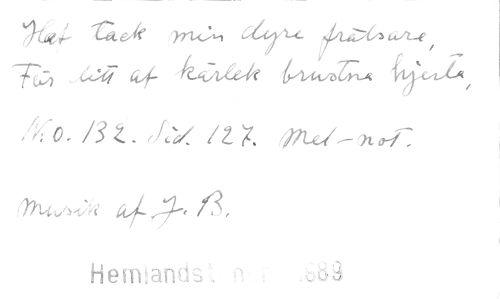 Haf tack min dyre frälsare,
För ditt af kärlek brustna hjerta,
No. 132. Sid. 127. Mel-not.
Musik af J. B.
Hemlandst n 1889